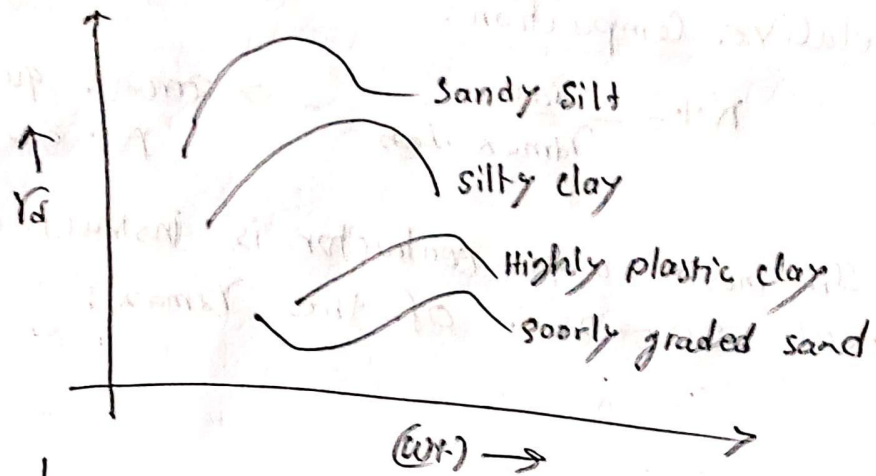 Sandy Silt
silty clay
γd
Highly plastic clay
poorly graded sand